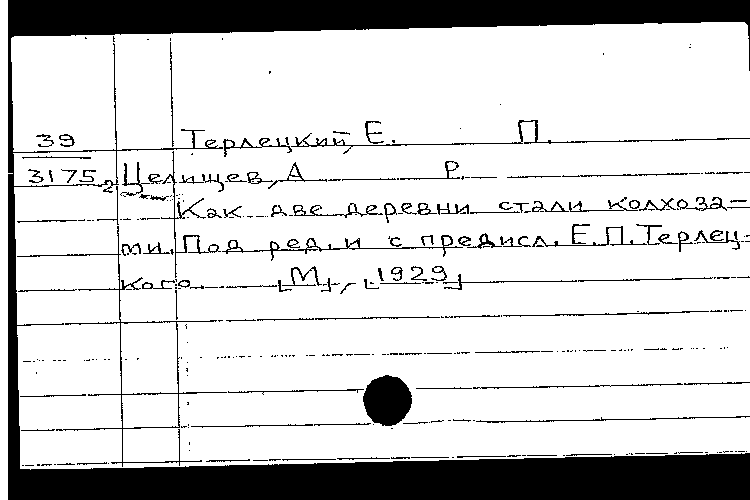 39 Терлецкий, Е. П.
3175₂ Целищев, А Р.
Как две деревни стали колхоза-
ми. Под ред. и с предисл. Е.П. Терлец-
кого. [М], [1929]